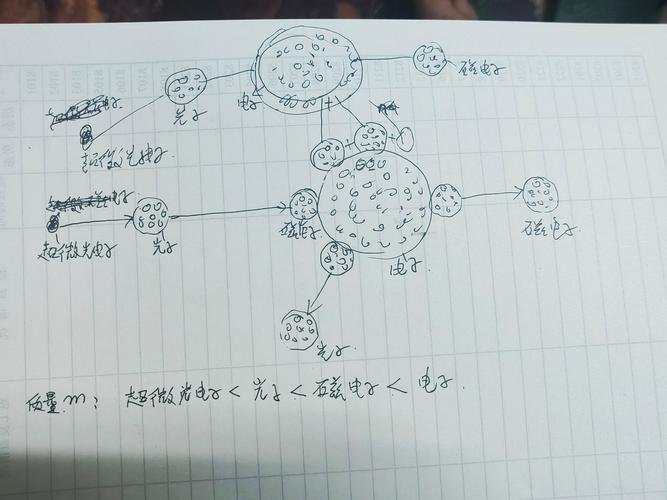 磁电子
光子
电子
超微光电子
磁电子
超微光电子
光子
电子
磁电子
光子
质量m: 超微光电子<光子<磁电子<电子.